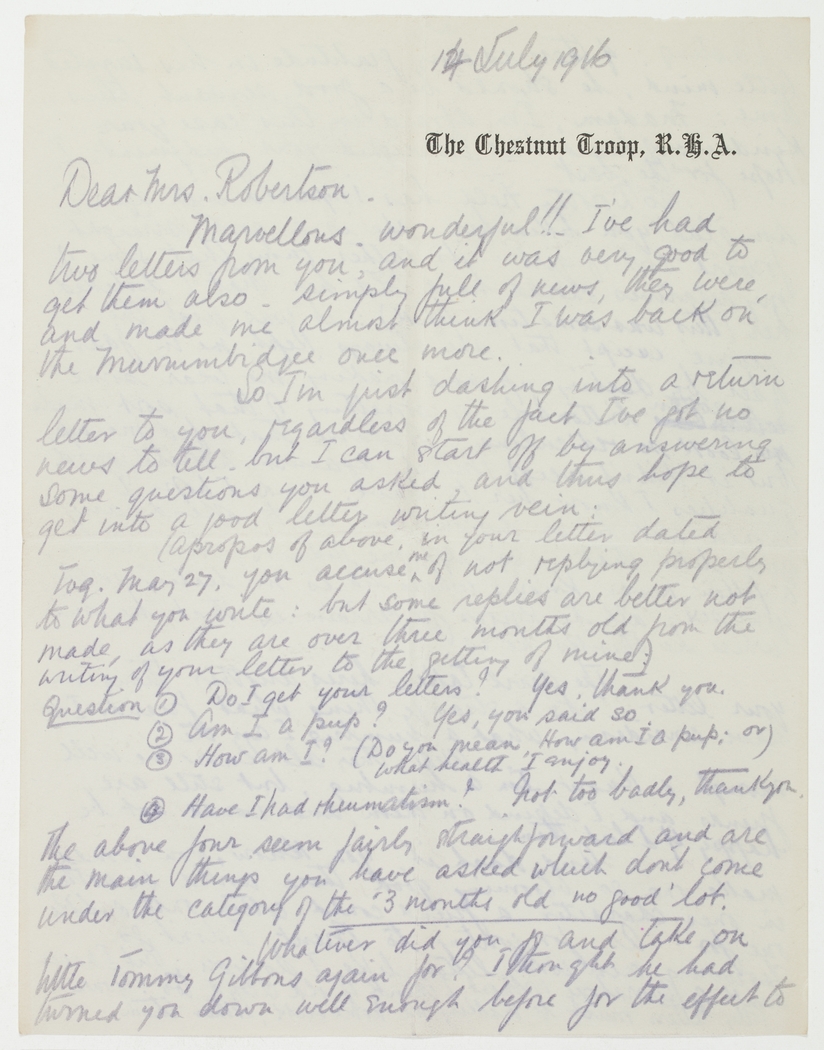 14 July 1916
The Chestnut Troop, R.H.A.
Dear Mrs. Robertson.
Marvellous - wonderful!! - I've had
two letters from you, and it was very good to
get them also - simply full of news, they were,
and made me almost think I was back on
the Murrumbidgee once more.
So I'm just dashing into a return
letter to you, regardless of the fact I've got no
news to tell - but I can start off by answering
some questions you asked, and thus hope to
get into a good letter writing vein:
(apropos of above, in your letter dated
Tog. May 27, you accuse me of not replying properly
to what you write: but some replies are better not
made, as they are over three months old from the
writing of your letter to the getting of mine;)
Question ① Do I get your letters? Yes, thank you.
② Am I a pup? Yes, you said so.
③ How am I? (Do you mean, How am I a pup; or)
what health I enjoy.
④ Have I had rheumatism? Not too badly, thankyou.
The above four seem fairly straighforward and are
the main things you have asked which don't come
under the category of the '3 months old no good' lot.
Whatever did you go and take on
little Tommy Gibbons again for? I thought he had
turned you down well enough before for the effect to